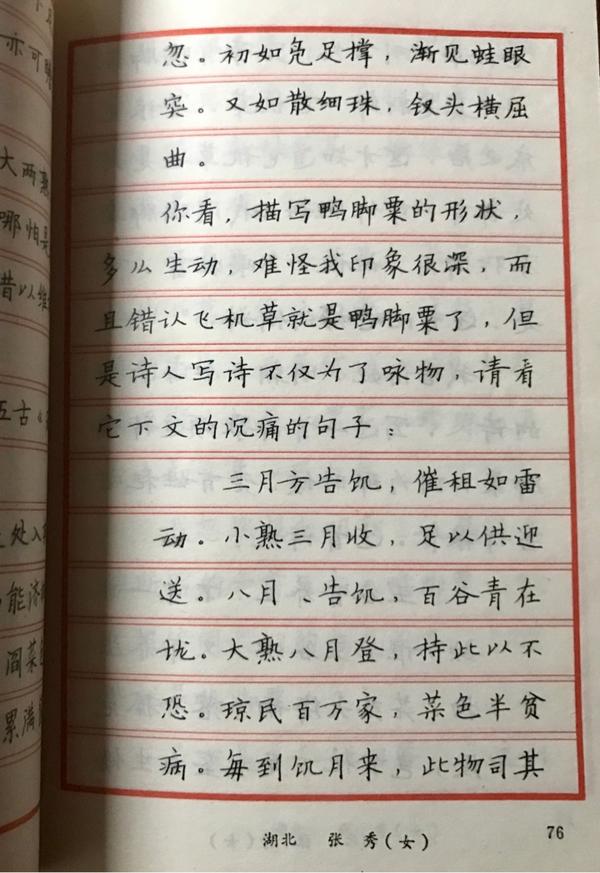 亦可
大两熟
哪怕是
昔以维
五古《
处入
能济
阎菜
累满
忽。初如凫足撑，渐见蛙眼
突。又如散细珠，钗头横屈
曲。
你看，描写鸭脚粟的形状，
多么生动，难怪我印象很深，而
且错认飞机草就是鸭脚粟了，但
是诗人写诗不仅为了咏物，请看
它下文的沉痛的句子：
三月方告饥，催租如雷
动。小熟三月收，足以供迎
送。八月、告饥，百谷青在
垅。大熟八月登，持此以不
恐。琼民百万家，菜色半贫
病。每到饥月来，此物司其
湖北 张秀(女)
76